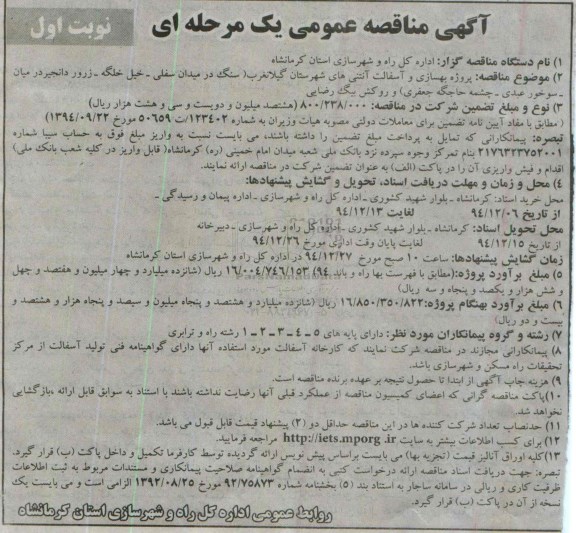 آگهی مناقصه عمومی یک مرحله ای
نوبت اول
۱) نام دستگاه مناقصه گزار: اداره کل راه و شهرسازی استان کرمانشاه
۲) موضوع مناقصه: پروژه بهسازی و آسفالت آنتنی های شهرستان گیلانغرب( سنگ در میدان سفلی - خیل خلگه - زرور دانجیردر میان
- سوخور عبدی - چشمه حاجگه جعفری) و روکش بیگ رضایی
۳) نوع و مبلغ تضمین شرکت در مناقصه: ۸۰۰/۲۳۸/۰۰۰ (هشتصد میلیون و دویست و سی و هشت هزار ریال)
( مطابق با مفاد آیین نامه تضمین برای معاملات دولتی مصوبه هیات وزیران به شماره ۱۲۳۴۰۲/ت ۵۰۶۵۹ مورخ ۱۳۹۴/۰۹/۲۲)
تبصره: پیمانکارانی که تمایل به پرداخت مبلغ تضمین را داشته باشند، می بایست نسبت به واریز مبلغ فوق به حساب سیبا شماره
۲۱۷۶۳۲۳۷۵۲۰۰۱ بنام تمرکز وجوه سپرده نزد بانک ملی شعبه میدان امام خمینی (ره) کرمانشاه( قابل واریز در کلیه شعب بانک ملی)
اقدام و فیش واریزی آن را در پاکت (الف) به عنوان تضمین شرکت در مناقصه ارائه نمایند.
۴) محل و زمان و مهلت دریافت اسناد، تحویل و گشایش پیشنهادها:
محل خرید اسناد: کرمانشاه - بلوار شهید کشوری - اداره کل راه و شهرسازی - اداره پیمان و رسیدگی -
از تاریخ ۹۴/۱۲/۰۶ لغایت ۹۴/۱۲/۱۳
محل تحویل اسناد: کرمانشاه - بلوار شهید کشوری - اداره کل راه و شهرسازی - دبیرخانه
از تاریخ ۹۴/۱۲/۱۵ لغایت پایان وقت اداری مورخ ۹۴/۱۲/۲۶
زمان گشایش پیشنهادها: ساعت ۱۰ صبح مورخ ۹۴/۱۲/۲۷ در اداره کل راه و شهرسازی استان کرمانشاه
۵) مبلغ برآورد پروژه:(مطابق با فهرست بها راه و باند ۹۴) ۱۶/۰۰۴/۷۴۶/۱۵۳ ریال (شانزده میلیارد و چهار میلیون و هفتصد و چهل
و شش هزار و یکصد و پنجاه و سه ریال)
۶) مبلغ برآورد بهنگام پروژه: ۱۶/۸۵۰/۳۵۰/۸۲۲ ریال (شانزده میلیارد و هشتصد و پنجاه میلیون و سیصد و پنجاه هزار و هشتصد و
بیست و دو ریال)
۷) رشته و گروه پیمانکاران مورد نظر: دارای پایه های ۵ - ۴ - ۳ - ۲ - ۱ رشته راه و ترابری
۸) پیمانکارانی مجازند در مناقصه شرکت نمایند که کارخانه آسفالت مورد استفاده آنها دارای گواهینامه فنی تولید آسفالت از مرکز
تحقیقات راه مسکن و شهرسازی باشد.
۹) هزینه چاپ آگهی از ابتدا تا حصول نتیجه بر عهده برنده مناقصه است.
۱۰) پاکت مناقصه گرانی که اعضای کمیسیون مناقصه از عملکرد قبلی آنها رضایت نداشته باشند با استناد به سوابق قابل ارائه ،بازگشایی
نخواهد شد.
۱۱) حدنصاب تعداد شرکت کننده ها در این مناقصه حداقل دو (۲) پیشنهاد قیمت قابل قبول می باشد.
۱۲) برای کسب اطلاعات بیشتر به سایت http://iets.mporg.ir مراجعه فرمایید.
۱۳) کلیه اوراق آنالیز قیمت (تجزیه بها) می بایست براساس پیش نویس ارائه گردیده توسط کارفرما تکمیل و داخل پاکت (ب) قرار گیرد.
تبصره: جهت دریافت اسناد مناقصه ارائه درخواست کتبی به انضمام گواهینامه صلاحیت پیمانکاری و مستندات مربوط به ثبت اطلاعات
ظرفیت کاری و ریالی در سامانه ساجار به استناد بند (۵) بخشنامه شماره ۹۲/۷۵۸۷۳ مورخ ۱۳۹۲/۰۸/۲۵ الزامی است و می بایست یک
نسخه از آن در پاکت (ب) قرار گیرد.
روابط عمومی اداره کل راه و شهرسازی استان کرمانشاه